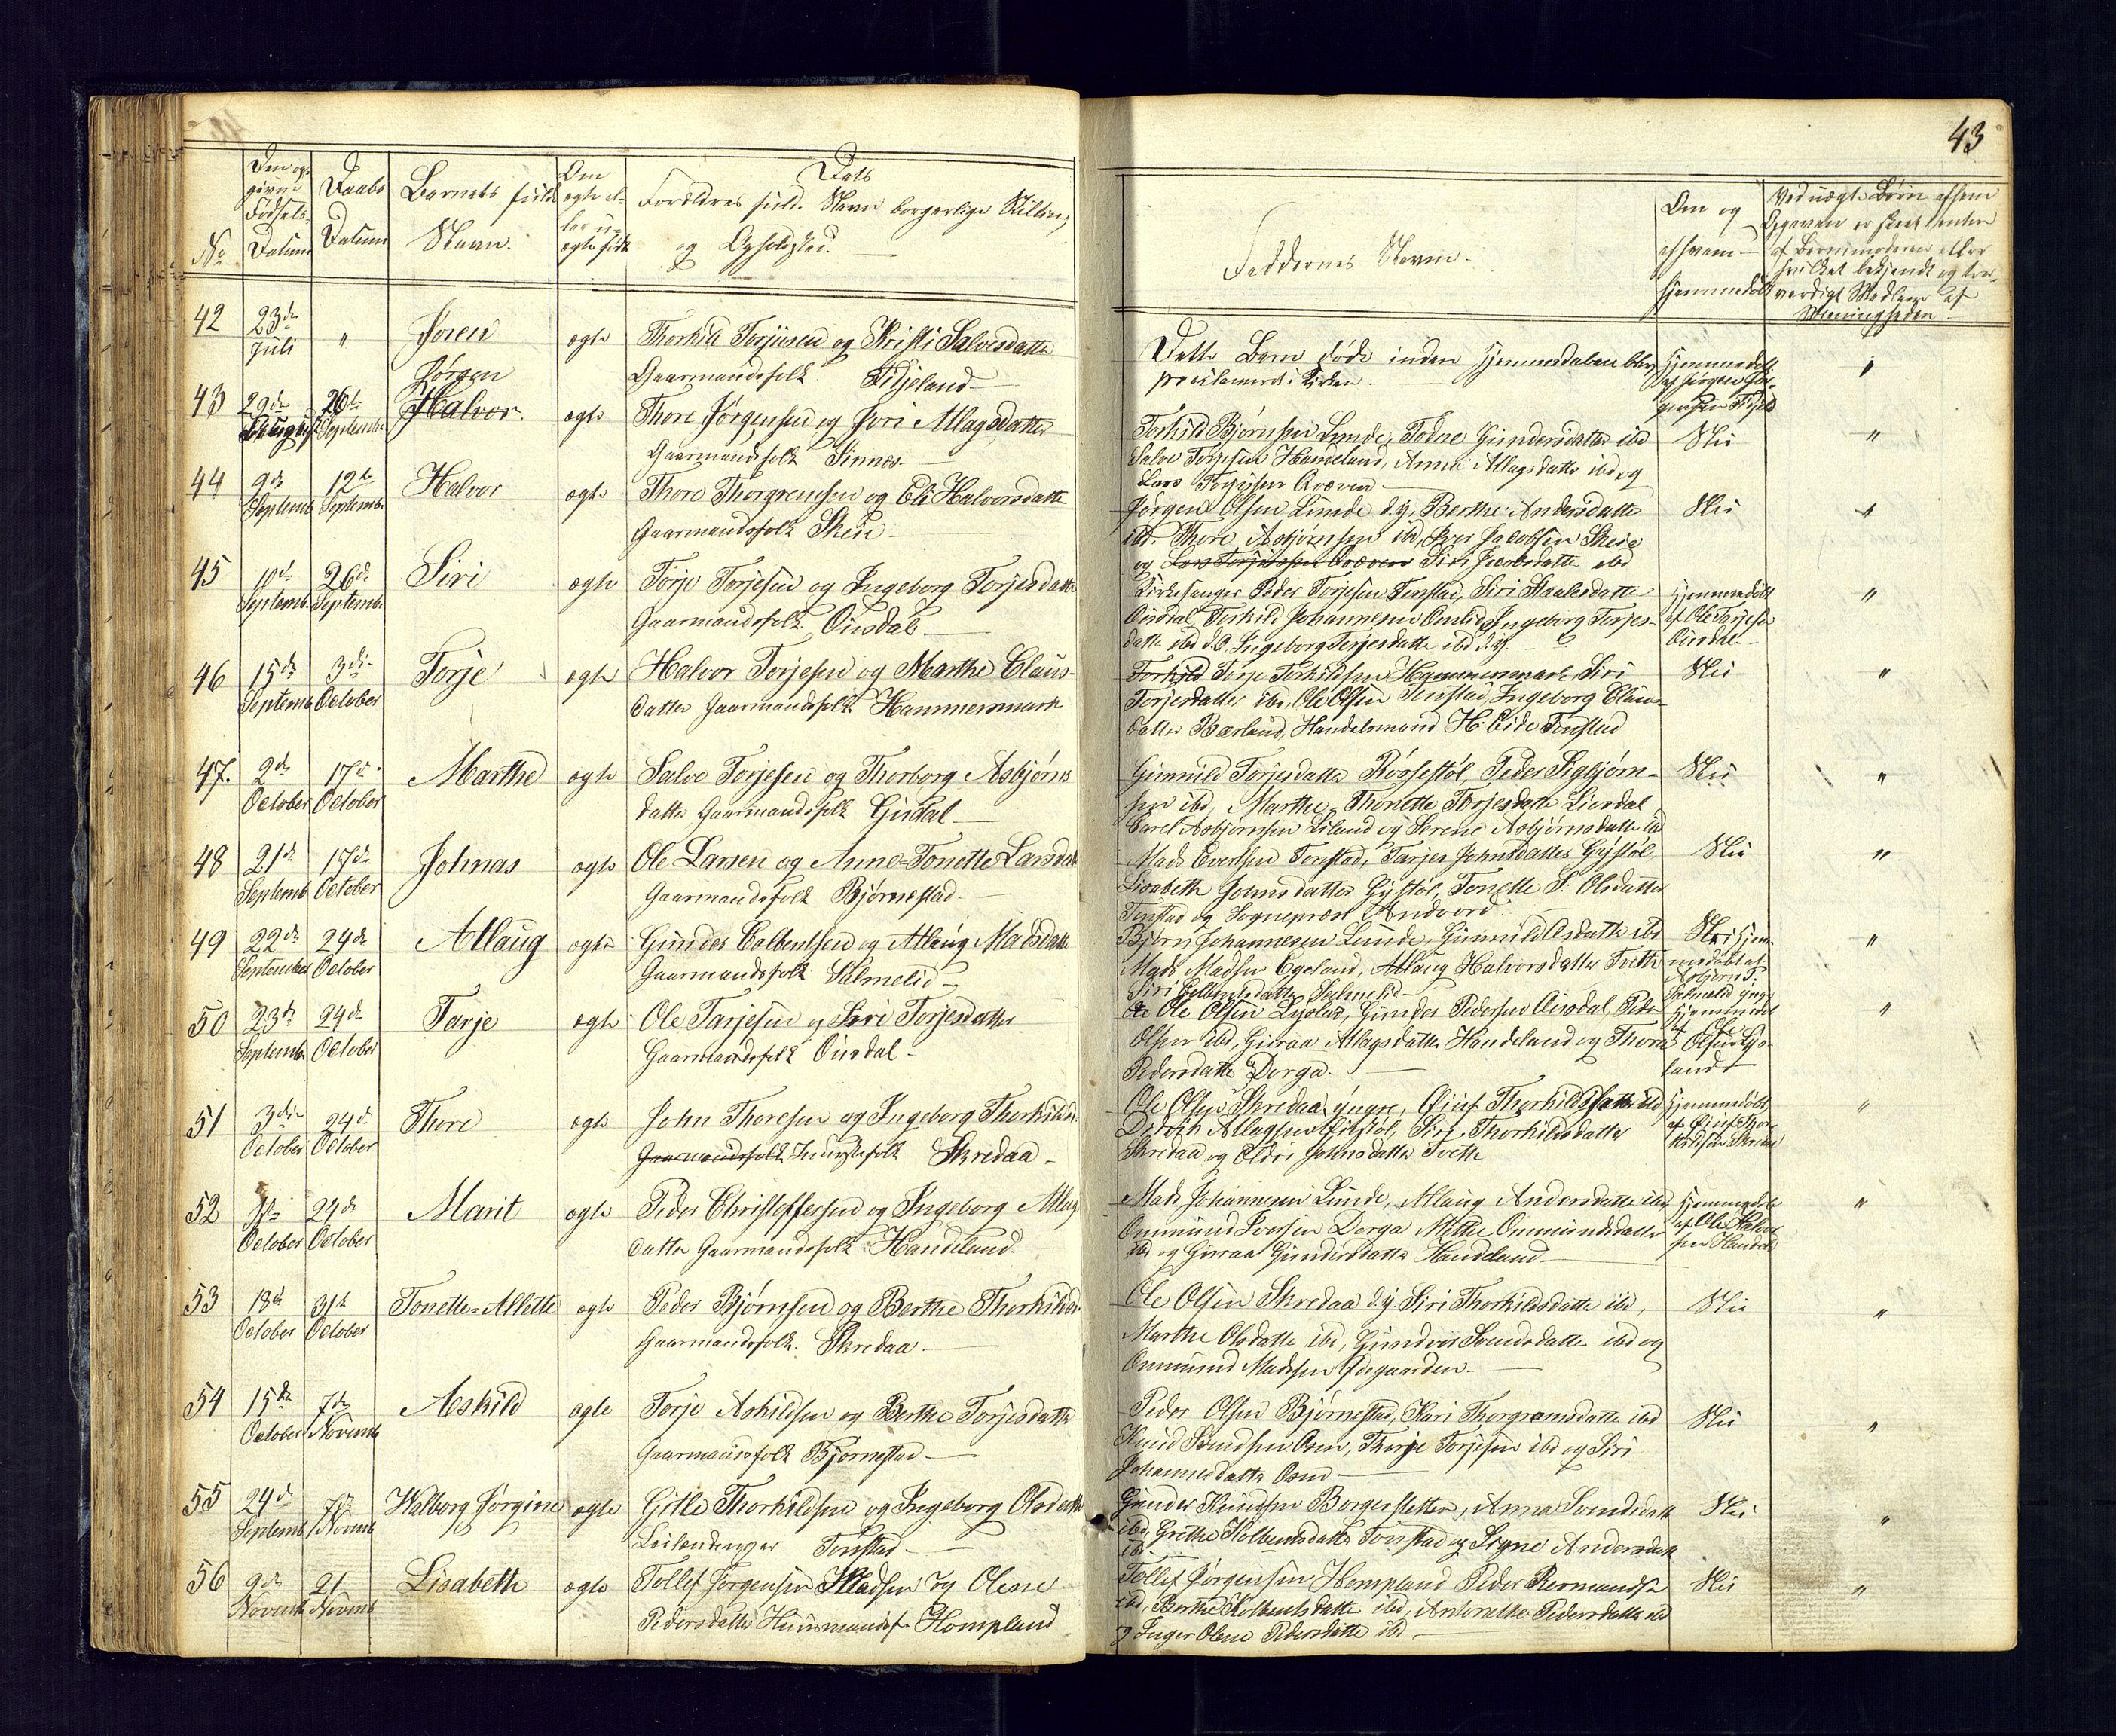 43
No
Den op-
givne
Fødsels-
Datum
Daabs
Datum
Barnets fulde
Navn.
Om
ægte el-
ler u-
ægte født
Dets
Forældres fulde Navn borgerlige Stilling
og Opholdsted.
Faddernes Navne.
Om og
af hvem
hjemmedøbt
Ved uægte Børn af hvem
Opgaven er skeet enten
af Barnemoderen eller
hvilket bekjendt og tro-
værdigt Medlem af
Menigheden.
42 23de Juli " Søren ægte Thorkild Torjusen og Kristi Salvesdatter
Gaarmandsfolk Fidjeland
Dette Barn døde inden Hjemmedaaben blev
proclameret i Kirken
Hjemmedøbt
af Jørgen
"
43 29de August 26de September Jørgen
Halvor. ægte Thore Jørgensen og Siri Atlagsdatter
Gaarmandsfolk Sinnes
Torkild Bjørnsen Lunde, Todne Gundersdatter ibd
Salve Torjesen Handeland, Anna Atlagsdatter ibd og
Lars Torjussen Qvæven
Nei "
44 9de Septemb 12te Septemb Halvor ægte Thore Thorgrensen og Eli Halvorsdatter
Gaarmandsfolk Skeie
Jørgen Olsen Lunde d.y, Berthe Andersdatter
ibd. Thore Asbjørnsen ibd, Jacobsen Skeie
og Lars Torjussen Qvæven Siri Jacobsdatter ibd
Nei "
45 10de Septemb. 26de Septemb Siri ægte Torje Torjesen og Ingeborg Torjesdatter
Gaarmandsfolk Ousdal
Kirkesanger Peder Torjesen Tonstad, Siri Staalesdatter
Ousdal, Torkild Johannesen Omlid, Ingeborg Torjes-
datter ibd d.æ. Ingeborg Torjesdatter ibd d.y.
Hjemmedøbt
af Ole Torjesen
Ousdal
"
46 15de Septemb 3die October Torje ægte Halvor Torjesen og Marthe Claus-
datter Gaarmandsfolk Hammermark
Torkild Torje Torkildsen Hammermark, Siri
Torjesdatter ibd, Ole Olsen Tonstad, Ingeborg Claus-
datter Bærland, Handelsmand H. Eide Tonstad
Nei "
47. 2den October 17de October Marthe ægte Salve Torjesen og Thorborg Asbjørns
datter Gaarmandsfolk Guddal
Gunnild Torjesdatter Røisestøl, Peder Sigbjørn-
sen ibd, Marthe Thonette Torjesdatter Lierdal
Carel Asbjørnsen Liland og Serene Asbjørnsdatter ibd
Nei "
48 21de Septemb 17de October Johnas ægte Ole Larsen og Anne-Tonette Larsdat
Gaarmandsfolk Bjørnestad
Mads Evertsen Tonstad, Tarjer Johnsdatter Gystøl
Lisabeth Johnsdatter Gystøl, Tonette S. Olsdatter
Tonstad og Sognepræst Andvord
Nei "
49 22de September 24de October Atlaug ægte Gunder Colbentsen og Atlaug Madsdatter
Gaarmandsfolk Salmelid
Bjørn Johannesen Lunde, Gunnild Osdatter ibd
Mads Madsen Egeland, Atlaug Halvorsdatter Tveth
Siri Colbentsdatter Salmelid
Nei Hjem-
medøbt af
Asbjørn T.
Salmelid yngre
"
50 23de Septemb 24de October Tarje ægte Ole Tarjesen og Siri Torjesdatter
Gaarmandsfolk Ousdal
Ole Olsen Lyslid, Gunder Pedersen Ousdal, Peder
Olsen ibd, Guraa Atlagsdatter Handeland og Thora
Pedersdatter Dorga.
Hjemmedøbt
af Ole
Olsen
land
"
51 3die October 24de October Thore ægte John Thoresen og Ingeborg Thorkildsd.
Gaarmandsfolk Inderstefolk Skredaa
Ole Olsen Skredaa yngre, Thorkildsdatter ibd
Didrik Atlagsen Fidjstøl, Siri Thorkildsdatter
Skredaa og Eldri Johnsdatter Tveth
Hjemmedøbt
af Thor-
kildsen Skredaa
"
52 October 24de October Marit ægte Peder Christoffersen og Ingeborg Atlag
datter Gaarmandsfolk Handeland.
Mads Johannesen Lunde, Atlaug Andersdatter ibd
Ommund Iversen Dorga Mette Ommundsdatter
ibd og Guraa Gundersdatter Handeland
Hjemmedøbt
af Ole Halvor
sen Handeld
"
53 18de October 31te October Tonette-Allette ægte Peder Bjørnsen og Berthe Thorkildsd.
Gaarmandsfolk. Skredaa
Ole Olsen Skredaa d.y Siri Thorkildsdatter ibd,
Marthe Olsdatter ibd, Gundvor Svendsdatter ibd og
Ommund Madsen Øegaarden.
Nei "
54 15de October 7de Novemb Askild ægte Torje Askildsen og Berthe Torjesdatter
Gaarmandsfolk Bjørnestad
Peder Olsen Bjørnestad, Kari Thorgramsdatter ibd
Knud Svendsen Osen, Thorje Torjesen ibd og Siri
Johannesdatter Osen
Nei "
55 24de Septemb 7de Novemb Walborg Jørgine ægte Gitle Thorkildsen og Ingeborg Olsdatter
Leilendinger Tonstad
Gunder Knudsen Borgersletten, Anna Svendsdatt
ibd, Grethe Kolbentsdatter Tonstad og Signe Andersdatt
ibd
Nei "
56 9de Novemb 21 Novemb Lisabeth ægte Tollef Jørgensen Madsen og Olene
Pedersdatter Huusmandsf. Hompland
Tollef Jørgensen Hompland Peder Reimundsen
ibd, Berthe Kolbentsdatter ibd, Antonette Pedersdatter ibd
og Inger Olene Pedersdatter ibd
Nei "